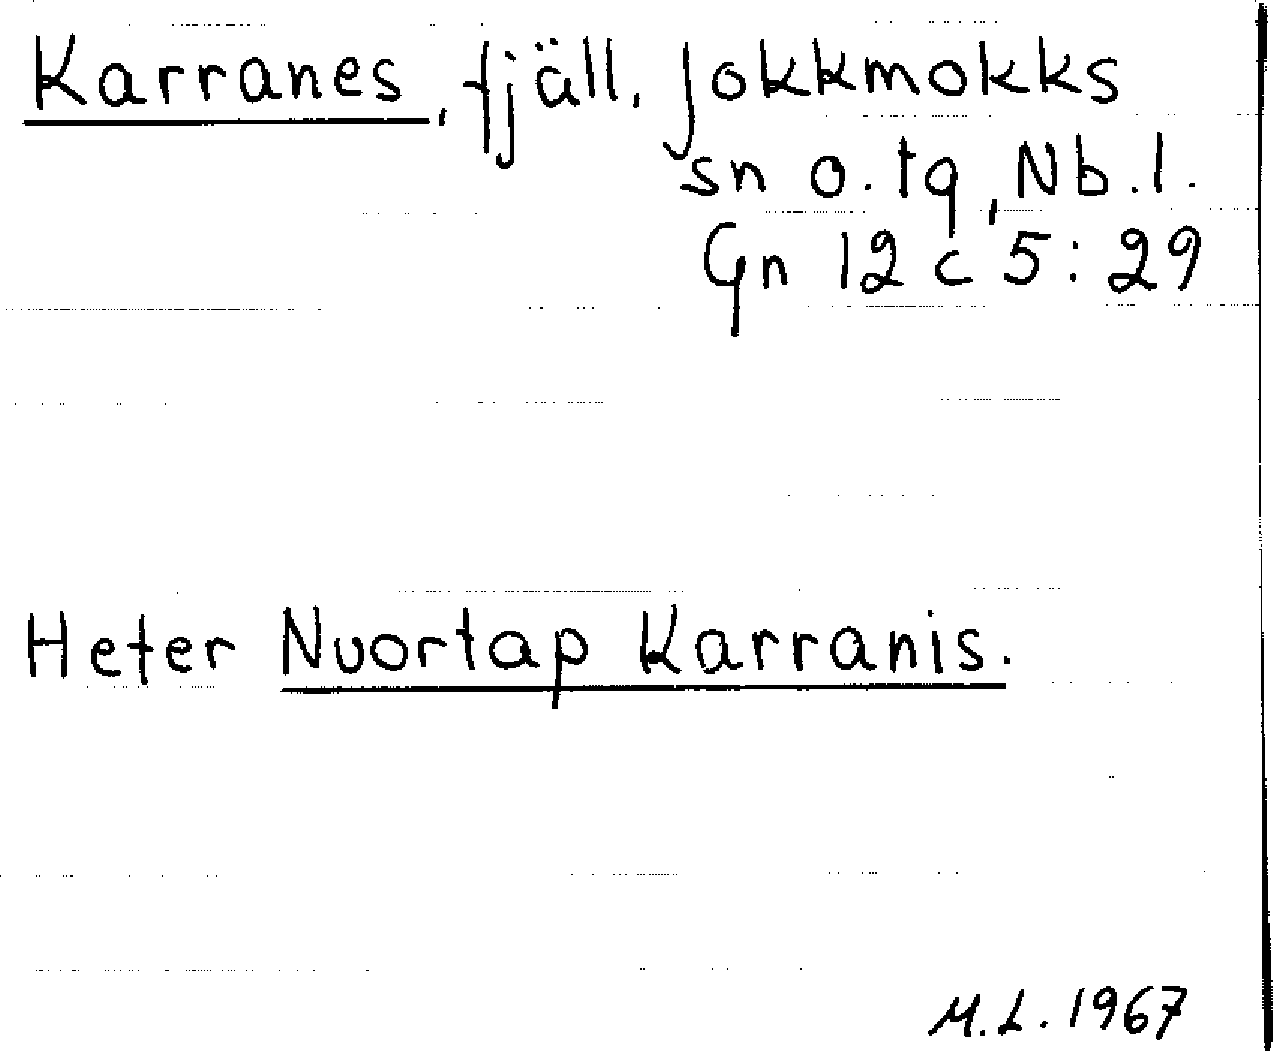 Karranes, fjäll, Jokkmokks
sn o. tg, Nb. l.
Gn 12 c 5:29
Heter Nuortap Karranis.
M.L. 1967